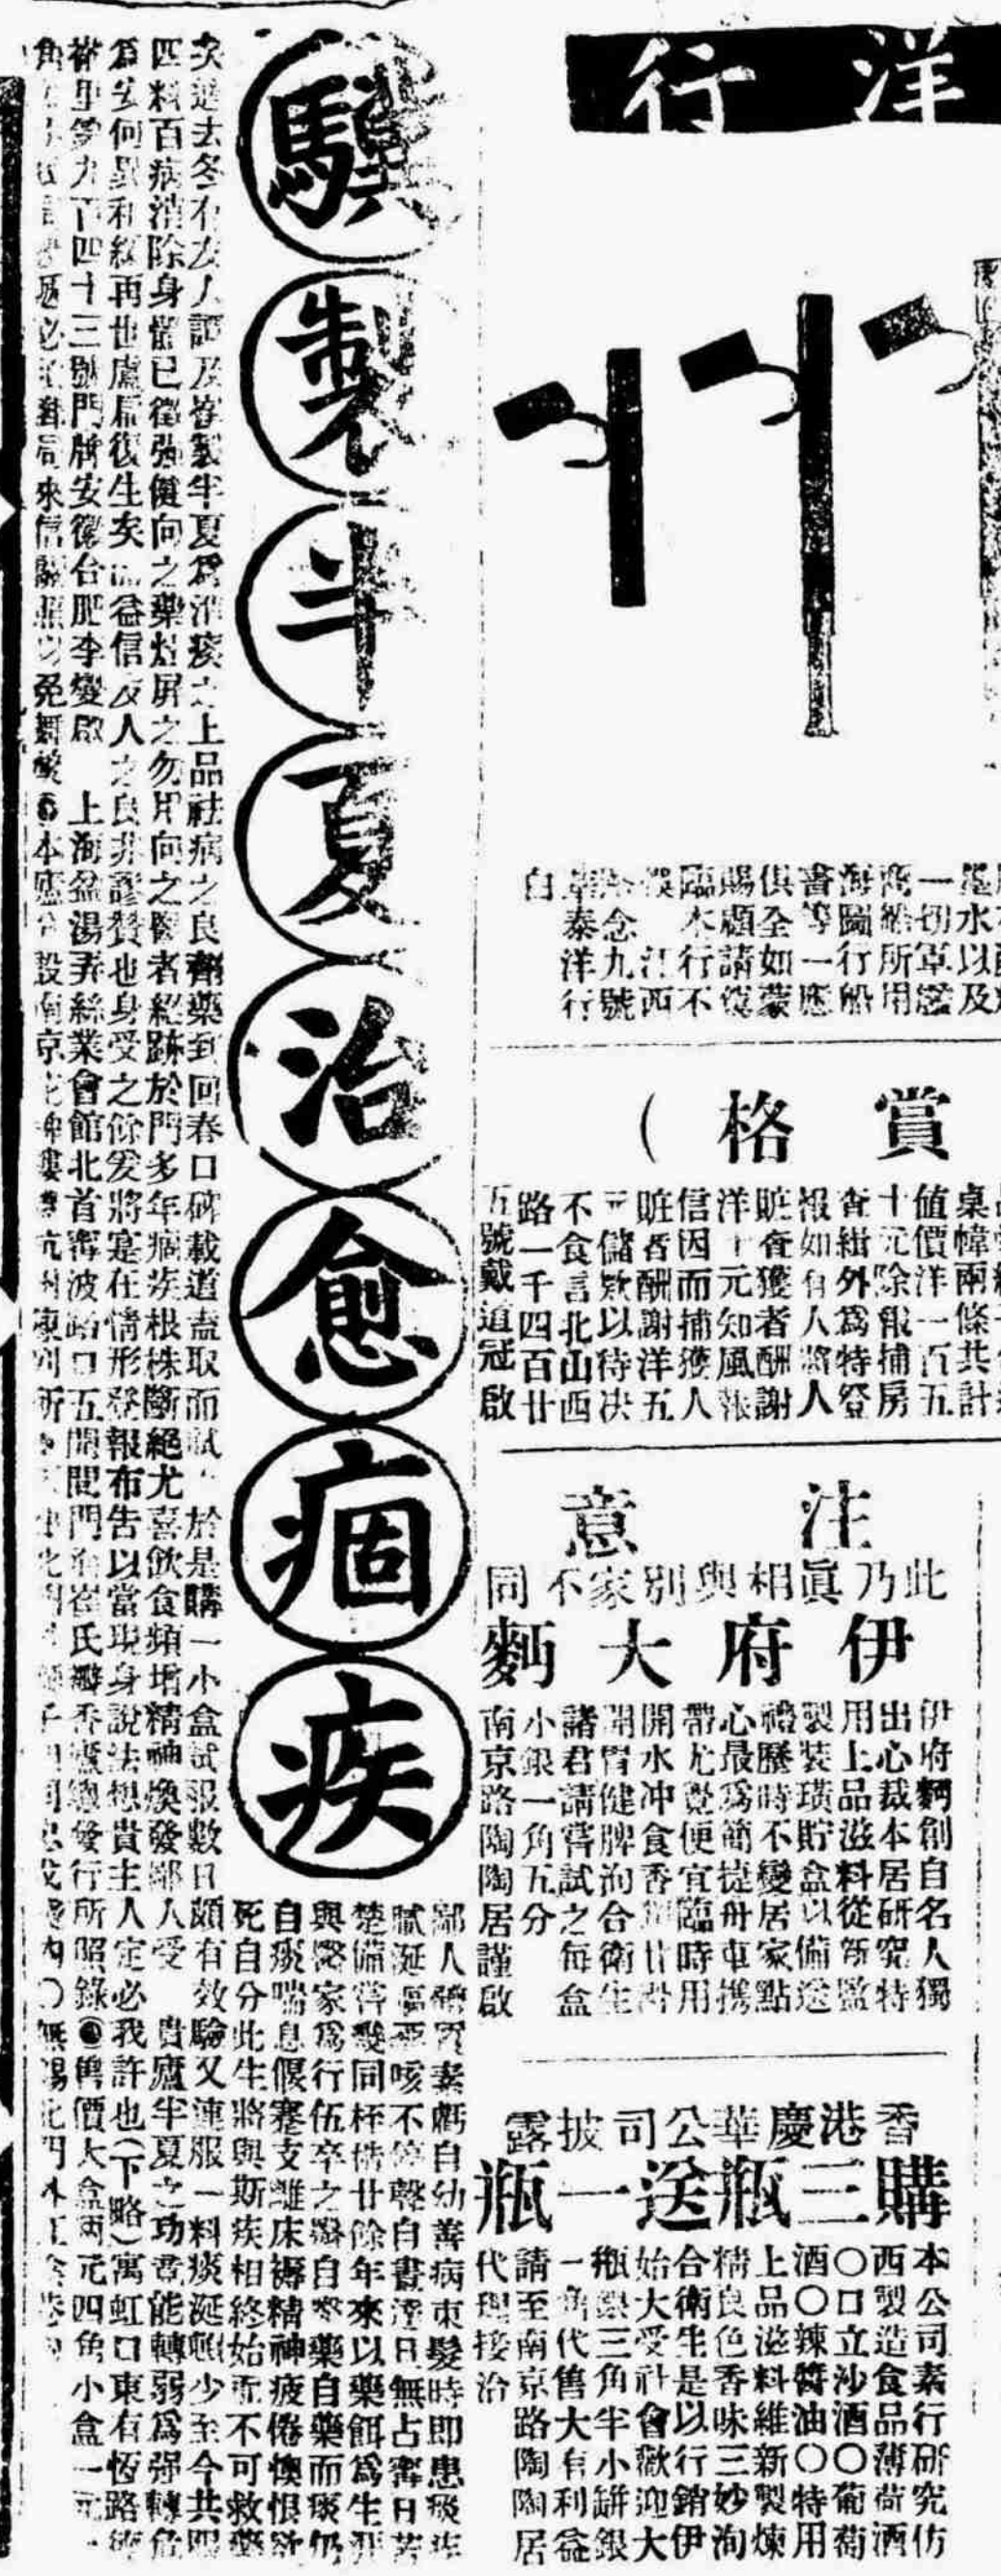 洋行
墨水以及
一切軍艦
商船所用
海圖行船
書等一應
俱全如蒙
賜顧請
臨本行不
誤 江西
念九號
泰洋行
白
賞格(
桌幃兩條共計
值價洋一百五
十元除報捕房
查緝外爲特登
報如有人將人
賍查獲者酬謝
洋十元知風報
信因而捕獲人
賍者酬謝洋五
元儲欵以待决
不食言北山西
路一千四百廿
五號戴道冠啟
注意
此乃眞相與別家不同
伊府大麪
伊府麪創自名人獨
出心裁本居研究特
用上品滋料從新監
製裝璜貯盒以備送
禮歷時不變居家點
心最爲簡捷舟車携
帶尤覺便宜臨時用
開水冲食香甘滑
開胃健脾洵合衛生
諸君請嘗試之每盒
小銀一角五分
南京路陶陶居謹啟
香港慶華公司披露
購三瓶送一瓶
本公司素行研究仿
西製造食品薄荷酒
〇口立沙酒〇葡萄
酒〇辣醬油〇特用
上品滋料維新製煉
精良色香味三妙洵
合衛生是以行銷伊
始大受社會歡迎大
瓶銀三角半小缾銀
一角代售大有利益
請至南京路陶陶居
代理接洽
製半夏治愈痼疾
鄙人體質素虧自幼善病束髮時即患痰疾
膩涎咳不停聲自晝達日無占寗日苦
楚備嘗幾同桎梏廿餘年來以藥餌爲生涯
與醫家爲行伍卒之醫自醫藥自藥而痰仍
自痰喘息偃蹇支離床褥精神疲倦懊恨欲
死自分此生將與斯疾相終始而不可救藥
次過去冬有友人談及製半夏爲消痰之上品祛病之良劑藥到回春口碑載道盍取而試於是購一小盒試服數日頗有效驗又連服一料痰涎少至今共服
四料百病消除身體已復强健向之藥爐屏之勿用向之醫者絕跡於門多年痼疾根株斷絕尤喜飲食頻增精神煥發鄙人受 貴廬半夏之功竟能轉弱爲强轉危
爲安何異和緩再世盧扁復生矣益信友人之良非謬贊也身受之餘爰將寔在情形登報布告以當現身說法想貴主人定必我許也(下略)寓虹口東有恆路
里第九百四十三號門牌安徽合肥李變啟 上海盆湯弄絲業會館北首寗波路口五開間門崔氏瓣香廬總發行所照錄◉售價大盒兩元四角小盒一元
角必來信以免舞獘本廬分設南京花牌樓杭州無錫北門外